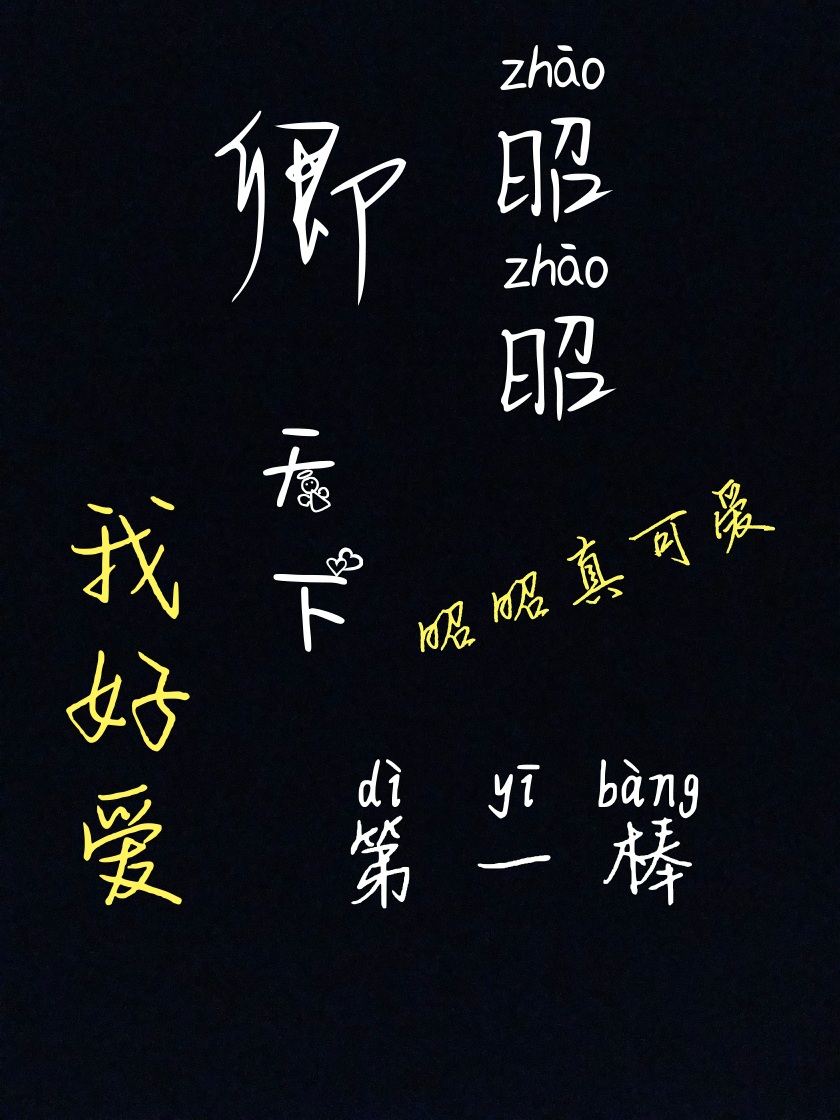 卿
zhāo
昭
zhāo
昭
天
下
我
好
爱
昭昭真可爱
dì yī bàng
第一棒